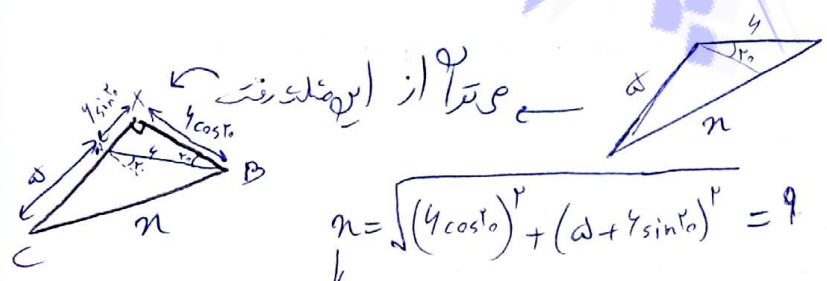 ۶
۲۰
۵
x
← می‌توان از این مثلث رفت
x
۶sin۲۰
۶cos۲۰
۶
۲۰
۲۰
۵
B
x
C
x = √(۶cos۲۰)^۲ + (۵ + ۶sin۲۰)^۲ = ?